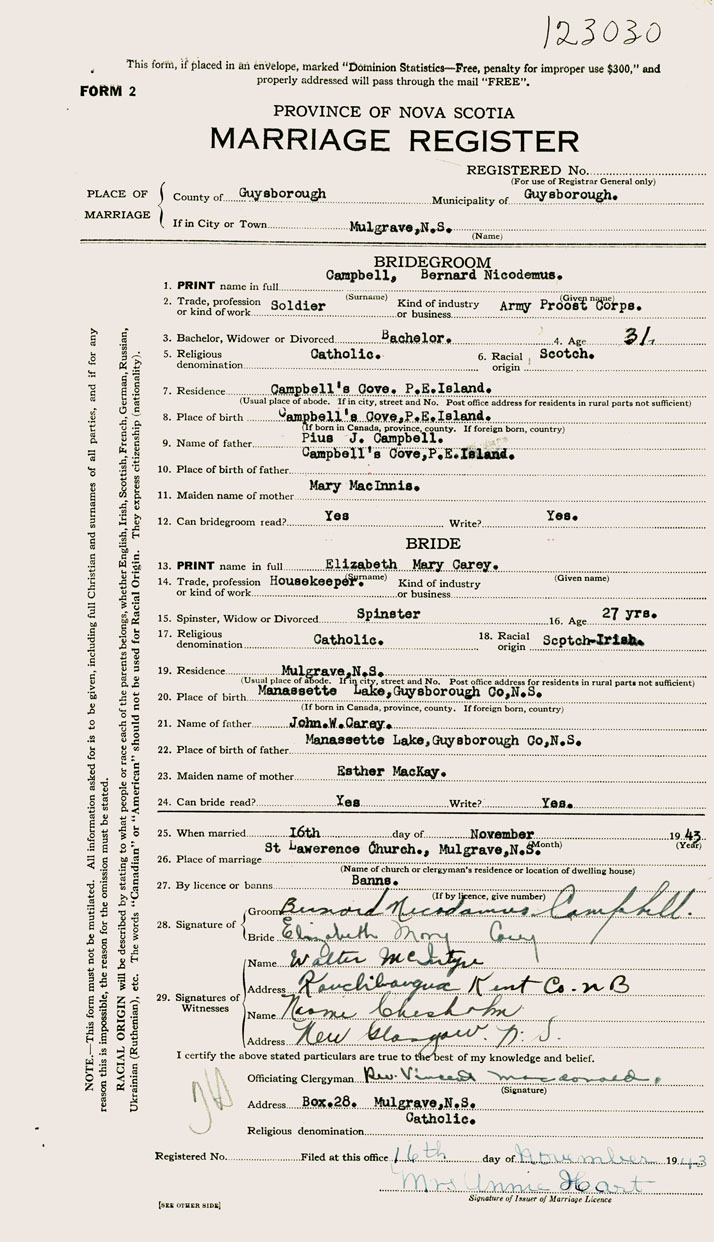 123030
This form, if placed in an envelope, marked "Dominion Statistics—Free, penalty for improper use $300," and
properly addressed will pass through the mail "FREE".
FORM 2
PROVINCE OF NOVA SCOTIA
MARRIAGE REGISTER
REGISTERED No.
(For use of Registrar General only)
PLACE OF MARRIAGE
County of Guysborough Municipality of Guysborough.
If in City or Town Mulgrave,N.S.
(Name)
BRIDEGROOM
Campbell, Bernard Nicodemus.
1. PRINT name in full
(Surname) (Given name)
2. Trade, profession or kind of work Soldier Kind of industry or business Army Proost Corps.
3. Bachelor, Widower or Divorced Bachelor. 4. Age 31.
5. Religious denomination Catholic. 6. Racial origin Scotch.
7. Residence Campbell's Cove. P.E.Island.
(Usual place of abode. If in city, street and No. Post office address for residents in rural parts not sufficient)
8. Place of birth Campbell's Cove,P.E.Island.
(If born in Canada, province, county. If foreign born, country)
9. Name of father Pius J. Campbell.
Campbell's Cove,P.E.Island.
10. Place of birth of father
11. Maiden name of mother Mary MacInnis.
12. Can bridegroom read? Yes Write? Yes.
BRIDE
13. PRINT name in full Elizabeth Mary Carey.
(Surname) (Given name)
14. Trade, profession or kind of work Housekeeper. Kind of industry or business
15. Spinster, Widow or Divorced Spinster 16. Age 27 yrs.
17. Religious denomination Catholic. 18. Racial origin Scptch-Irish.
19. Residence Mulgrave,N.S.
(Usual place of abode. If in city, street and No. Post office address for residents in rural parts not sufficient)
20. Place of birth Manassette Lake,Guysborough Co,N.S.
(If born in Canada, province, county. If foreign born, country)
21. Name of father John.W.Carey.
22. Place of birth of father Manassette Lake,Guysborough Co,N.S.
23. Maiden name of mother Esther MacKay.
24. Can bride read? Yes Write? Yes.
25. When married 16th day of November 1943
(Month) (Year)
26. Place of marriage St Lawerence Church., Mulgrave,N.S.
(Name of church or clergyman's residence or location of dwelling house)
27. By licence or banns Banns.
(If by licence, give number)
28. Signature of
Groom Bernard Nicodamus Campbell.
Bride Elizabeth Mary Carey
29. Signatures of Witnesses
Name Walter McIntyre
Address Kouchibougua Kent Co. N B
Name Naomi Chesholm
Address New Glasgow. N. S.
I certify the above stated particulars are true to the best of my knowledge and belief.
Officiating Clergyman Rev. Vincent Macdonald.
(Signature)
Address Box.28. Mulgrave,N.S.
Religious denomination Catholic.
Registered No. Filed at this office 16th day of November 1943
Mrs Annie Hart
Signature of Issuer of Marriage Licence
[SEE OTHER SIDE]
NOTE.—This form must not be mutilated. All information asked for is to be given, including full Christian and surnames of all parties, and if for any
reason this is impossible, the reason for the omission must be stated.
RACIAL ORIGIN will be described by stating to what people or race each of the parents belongs, whether English, Irish, Scottish, French, German, Russian,
Ukrainian (Ruthenian), etc. The words "Canadian" or "American" should not be used for Racial Origin. They express citizenship (nationality).